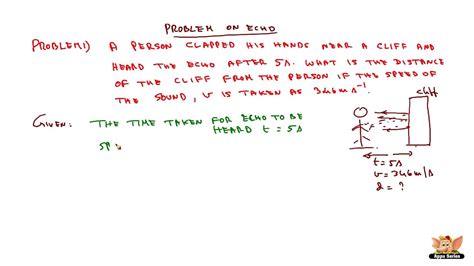 PROBLEM ON ECHO
PROBLEM 1) A PERSON CLAPPED HIS HANDS NEAR A CLIFF AND
HEARD THE ECHO AFTER 5s. WHAT IS THE DISTANCE
OF THE CLIFF FROM THE PERSON IF THE SPEED OF
THE SOUND, v IS TAKEN AS 346 m s⁻¹.
cliff
GIVEN: THE TIME TAKEN FOR ECHO TO BE
HEARD t = 5s
SP
t = 5s
v = 346 m/s
d = ?
Appu Series